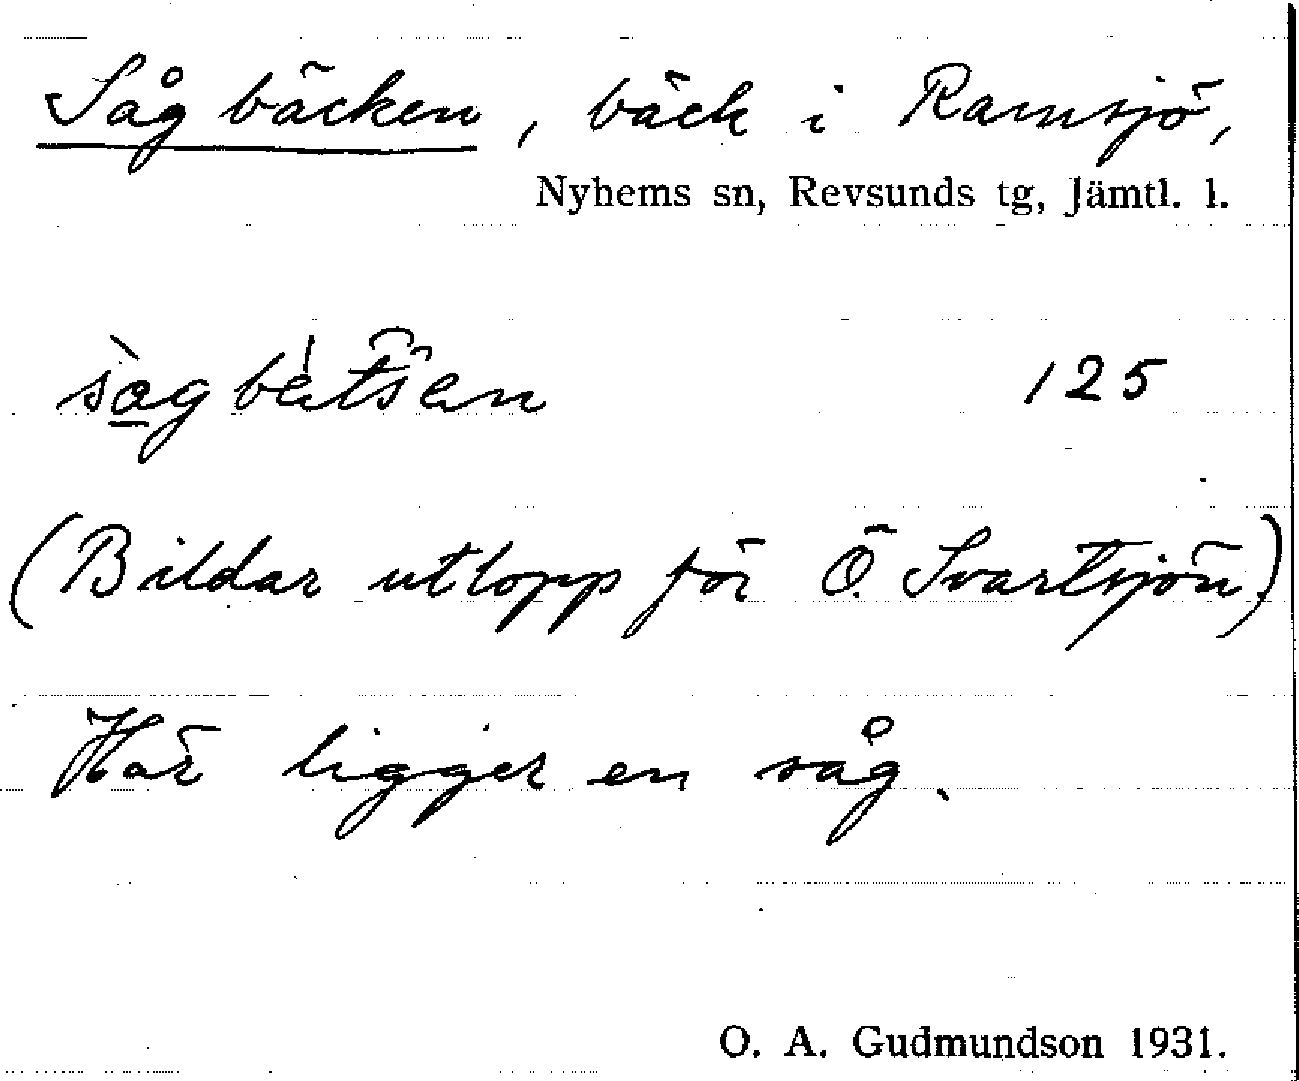 Sågbäcken, bäck i Ramsjö,
Nyhems sn, Revsunds tg, Jämtl. l.
125
(Bildar utlopp för Ö. Svartsjön)
Här ligger en såg.
O. A. Gudmundson 1931.